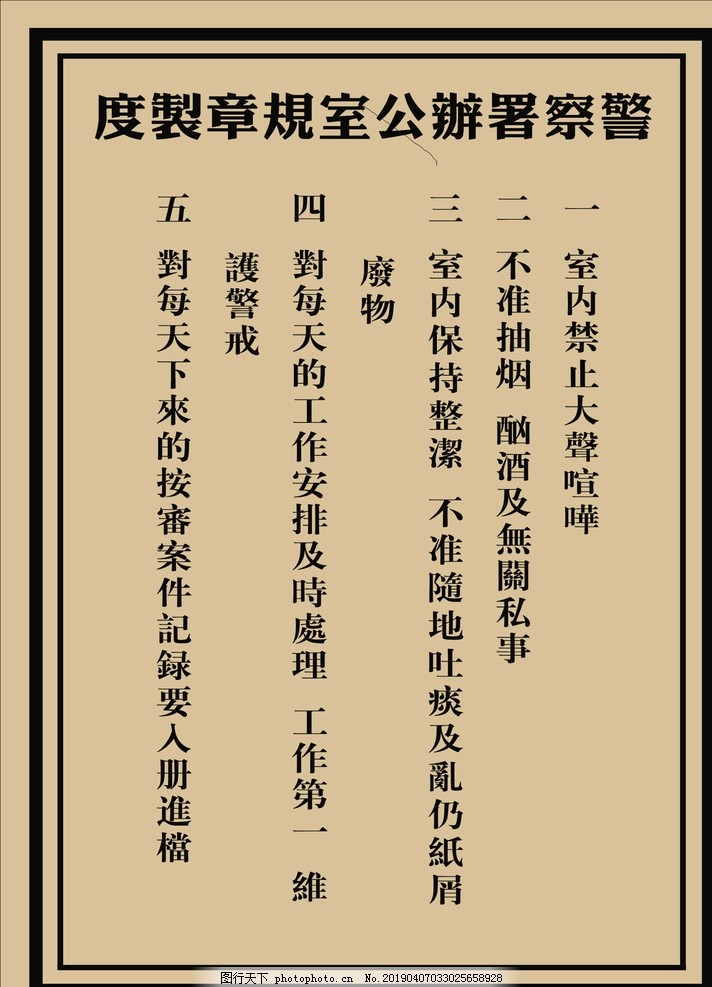 警察署辦公室規章製度
一 室内禁止大聲喧嘩
二 不准抽烟 酗酒及無關私事
三 室内保持整潔 不准隨地吐痰及亂仍紙屑
廢物
四 對每天的工作安排及時處理 工作第一 維
護警戒
五 對每天下來的按審案件記録要入册進檔
图行天下 photophoto.cn No.20190407033025658928